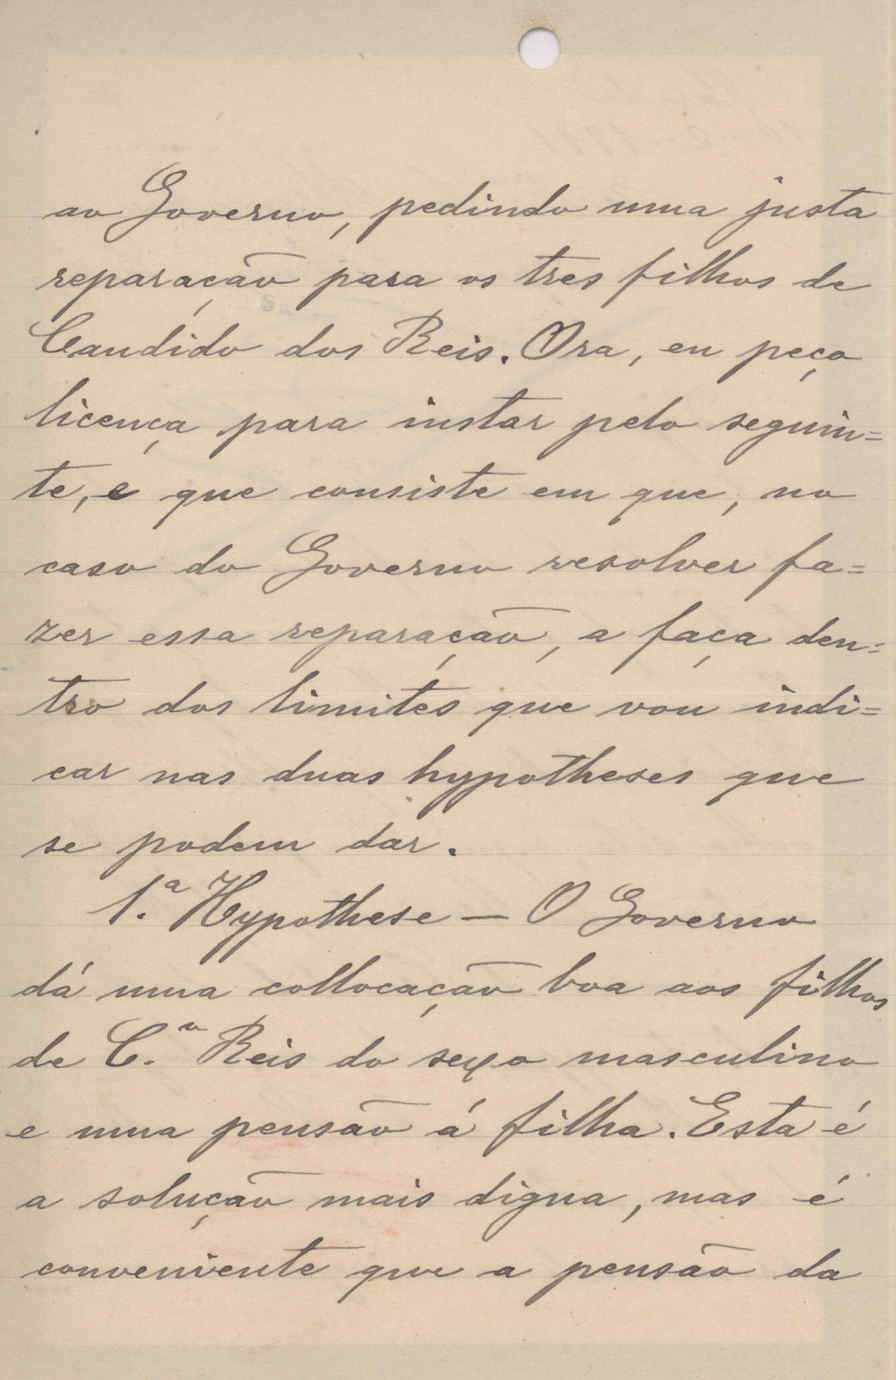 ao Governo, pedindo uma justa
reparação para os tres filhos de
Candido dos Reis. Ora, eu peço
licença para instar pelo seguin=
te, e que consiste em que, no
caso do Governo resolver fa=
zer essa reparação, a faça den=
tro dos limites que vou indi=
car nas duas hypotheses que
se podem dar.
1.ª Hypothese — O Governo
dá uma collocação boa aos filhos
de C.º Reis do sexo masculino
e uma pensão á filha. Esta é
a solução mais digna, mas é
conveniente que a pensão da